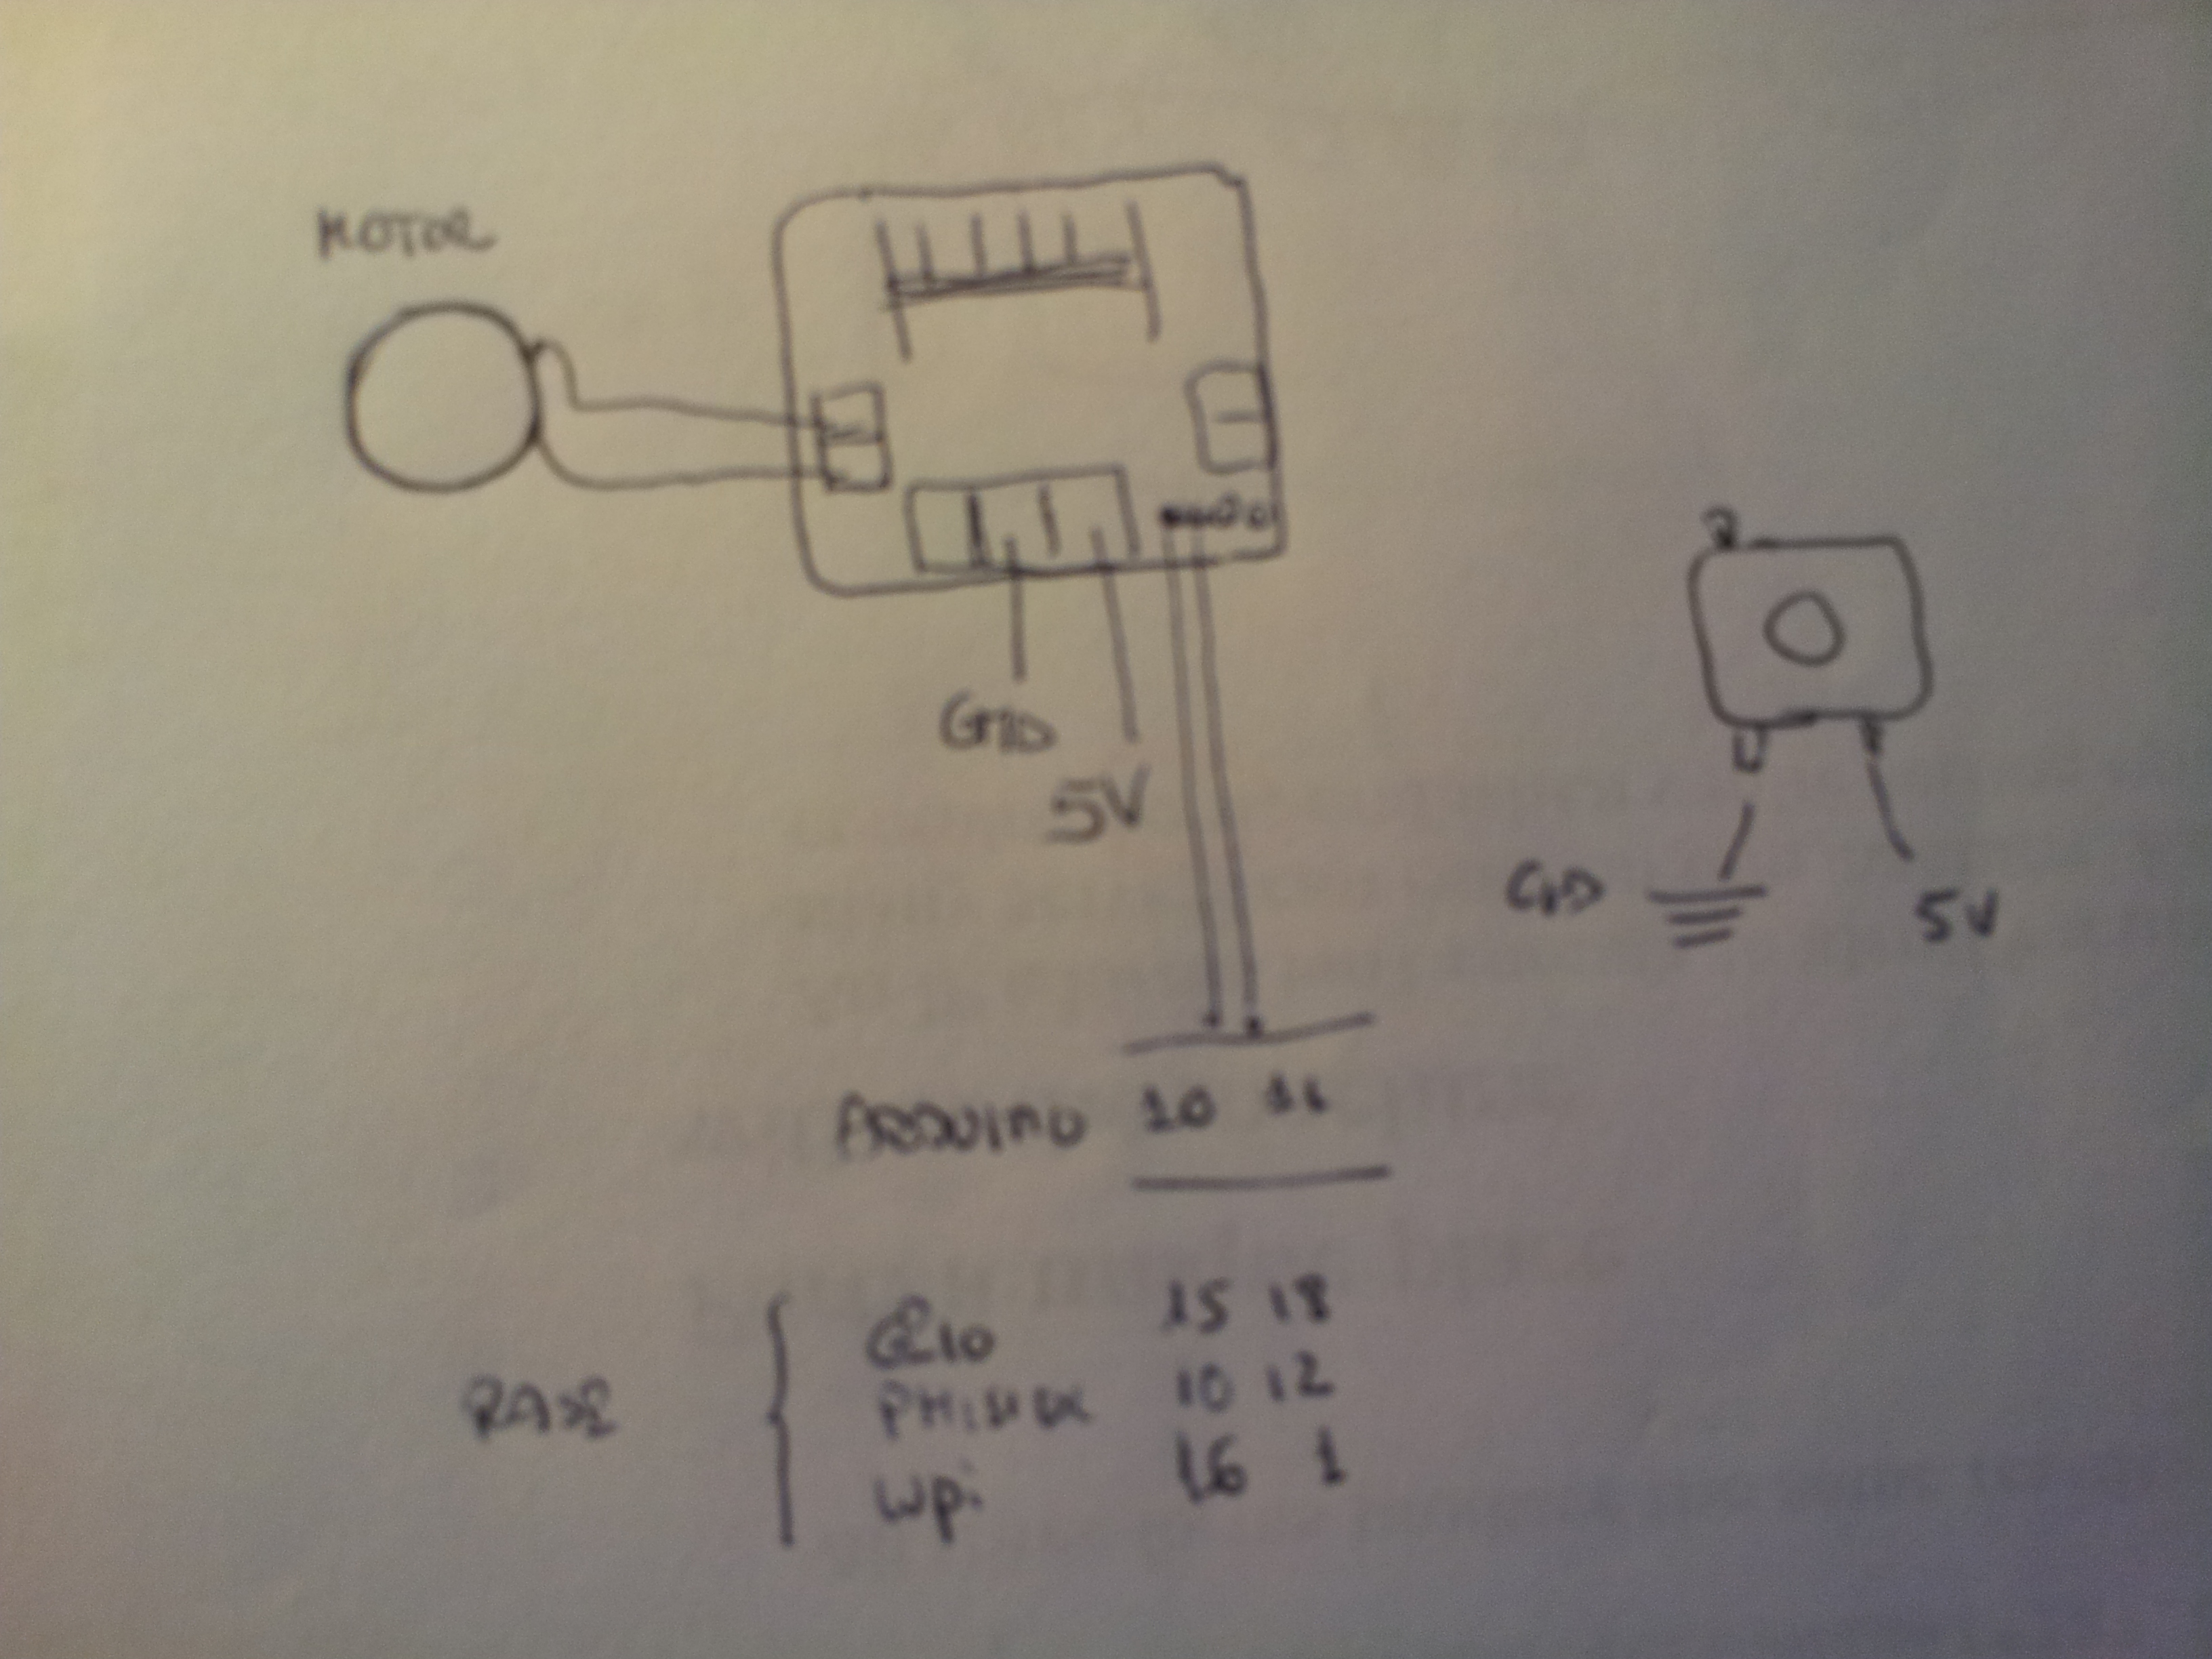 MOTOR
GND
5V
GND
5V
ARDUINO 10 11
RASP
GPIO 15 18
10 12
wpi 16 1